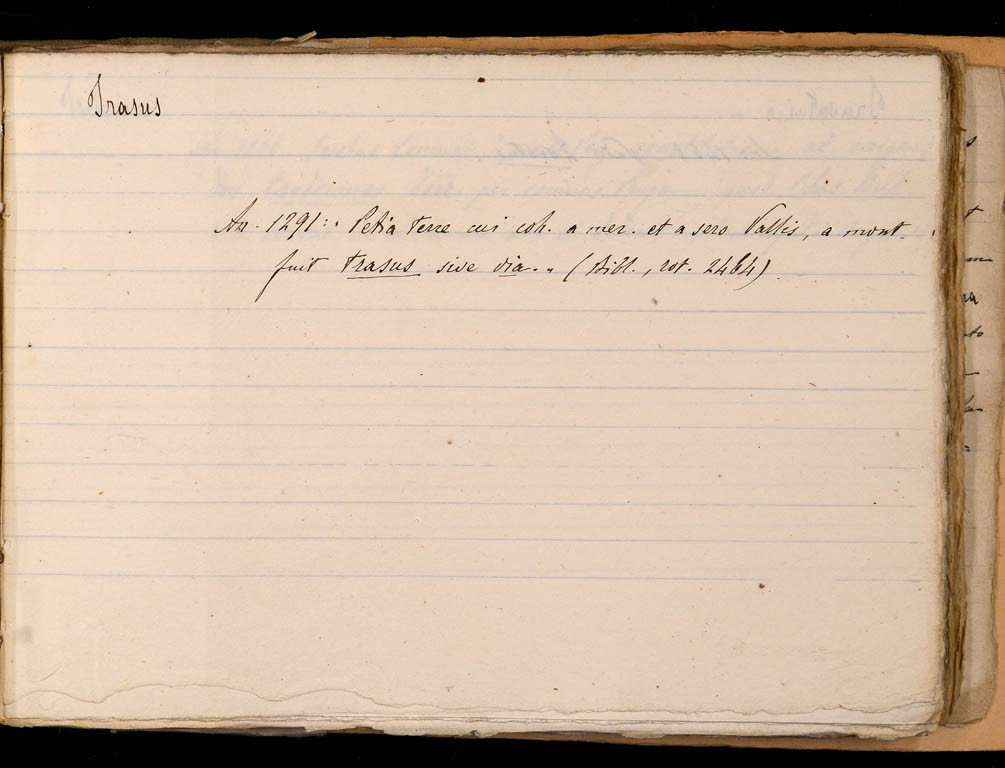 Trasus
An. 1291: Petia terre cui coh. a mer. et a sero Vallis, a mont.
fuit trasus sive via.. (Bibl., rot. 2464)